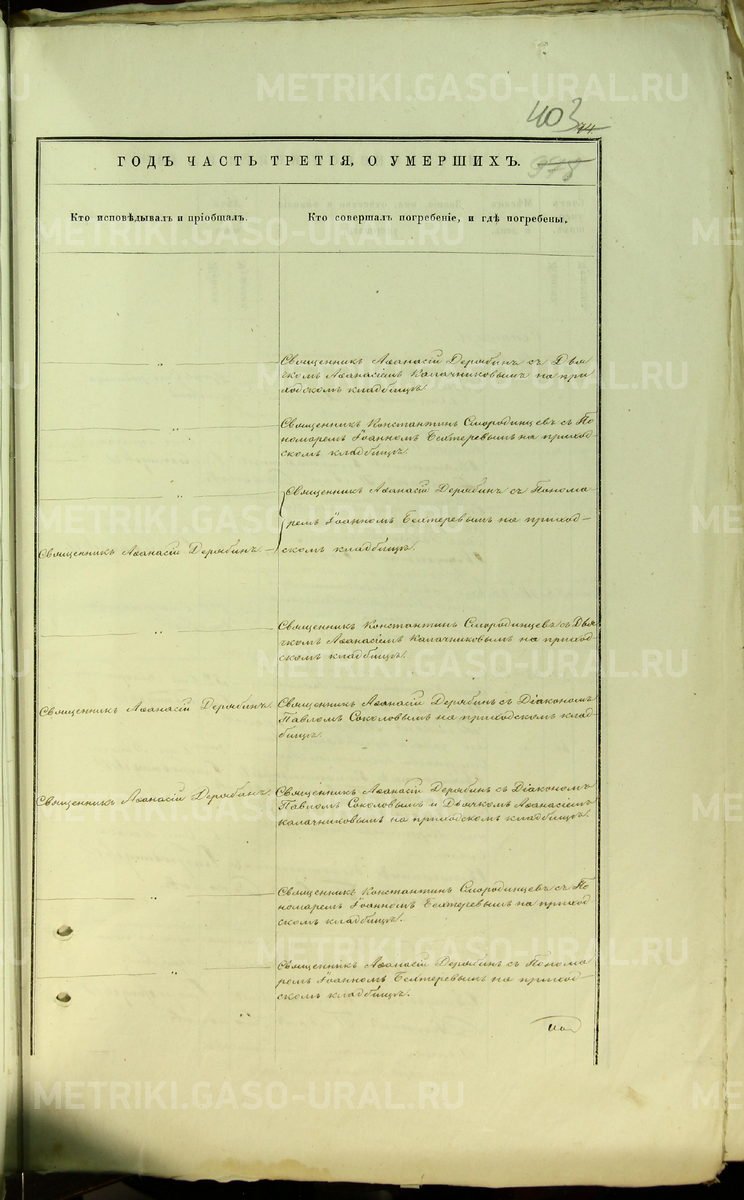 METRIKI.GASO-URAL.RU
403
74.
978
ГОДЪ ЧАСТЬ ТРЕТІЯ, О УМЕРШИХЪ.
Кто исповѣдывалъ и пріобщалъ.
Кто совершалъ погребеніе, и гдѣ погребены.
Священникъ Аѳанасій Дерябинъ съ Дья
чкомъ Аѳанасіемъ Калачниковымъ на при
ходскомъ кладбищѣ.
Священникъ Константинъ Смородинцевъ съ По
номаремъ Іоанномъ Бехтеревымъ на приход
скомъ кладбищѣ.
Священникъ Аѳанасій Дерябинъ съ Понома-
ремъ Іоанномъ Бехтеревымъ на приход-
Священникъ Аѳанасій Дерябинъ
скомъ кладбищѣ.
Священникъ Константинъ Смородинцевъ съ Дья
чкомъ Аѳанасіемъ Калачниковымъ на приход
скомъ кладбищѣ.
Священникъ Аѳанасій Дерябинъ.
Священникъ Аѳанасій Дерябинъ съ Діакономъ
Павломъ Соколовымъ на приходскомъ клад-
бищѣ.
Священникъ Аѳанасій Дерябинъ.
Священникъ Аѳанасій Дерябинъ съ Діакономъ
Павломъ Соколовымъ и Дьячкомъ Аѳанасіемъ
Калачниковымъ на приходскомъ кладбищѣ.
Священникъ Константинъ Смородинцевъ съ По
номаремъ Іоанномъ Бехтеревымъ на приход
скомъ кладбищѣ.
Священникъ Аѳанасій Дерябинъ съ Понома
ремъ Іоанномъ Бехтеревымъ на приход
скомъ кладбищѣ.